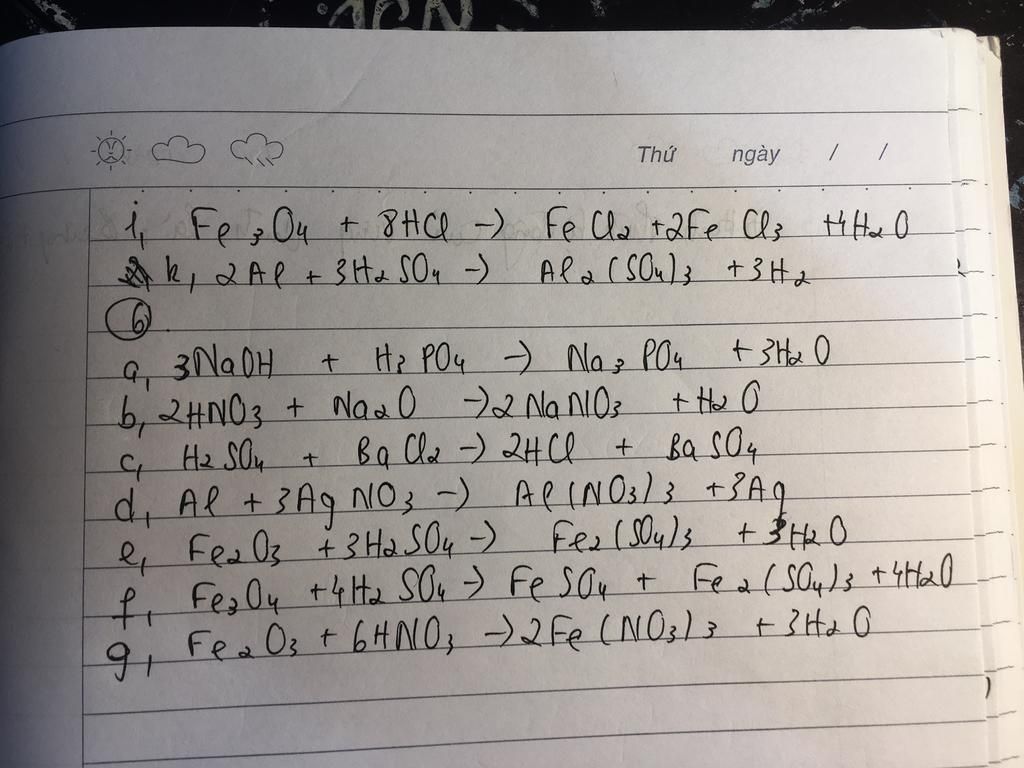 Thứ ngày / /
i, Fe3O4 + 8HCl -> FeCl2 + 2FeCl3 + 4H2O
k, 2Al + 3H2SO4 -> Al2(SO4)3 + 3H2
6
a, 3NaOH + H3PO4 -> Na3PO4 + 3H2O
b, 2HNO3 + Na2O -> 2NaNO3 + H2O
c, H2SO4 + BaCl2 -> 2HCl + BaSO4
d, Al + 3AgNO3 -> Al(NO3)3 + 3Ag
e, Fe2O3 + 3H2SO4 -> Fe2(SO4)3 + 3H2O
f, Fe3O4 + 4H2SO4 -> FeSO4 + Fe2(SO4)3 + 4H2O
g, Fe2O3 + 6HNO3 -> 2Fe(NO3)3 + 3H2O